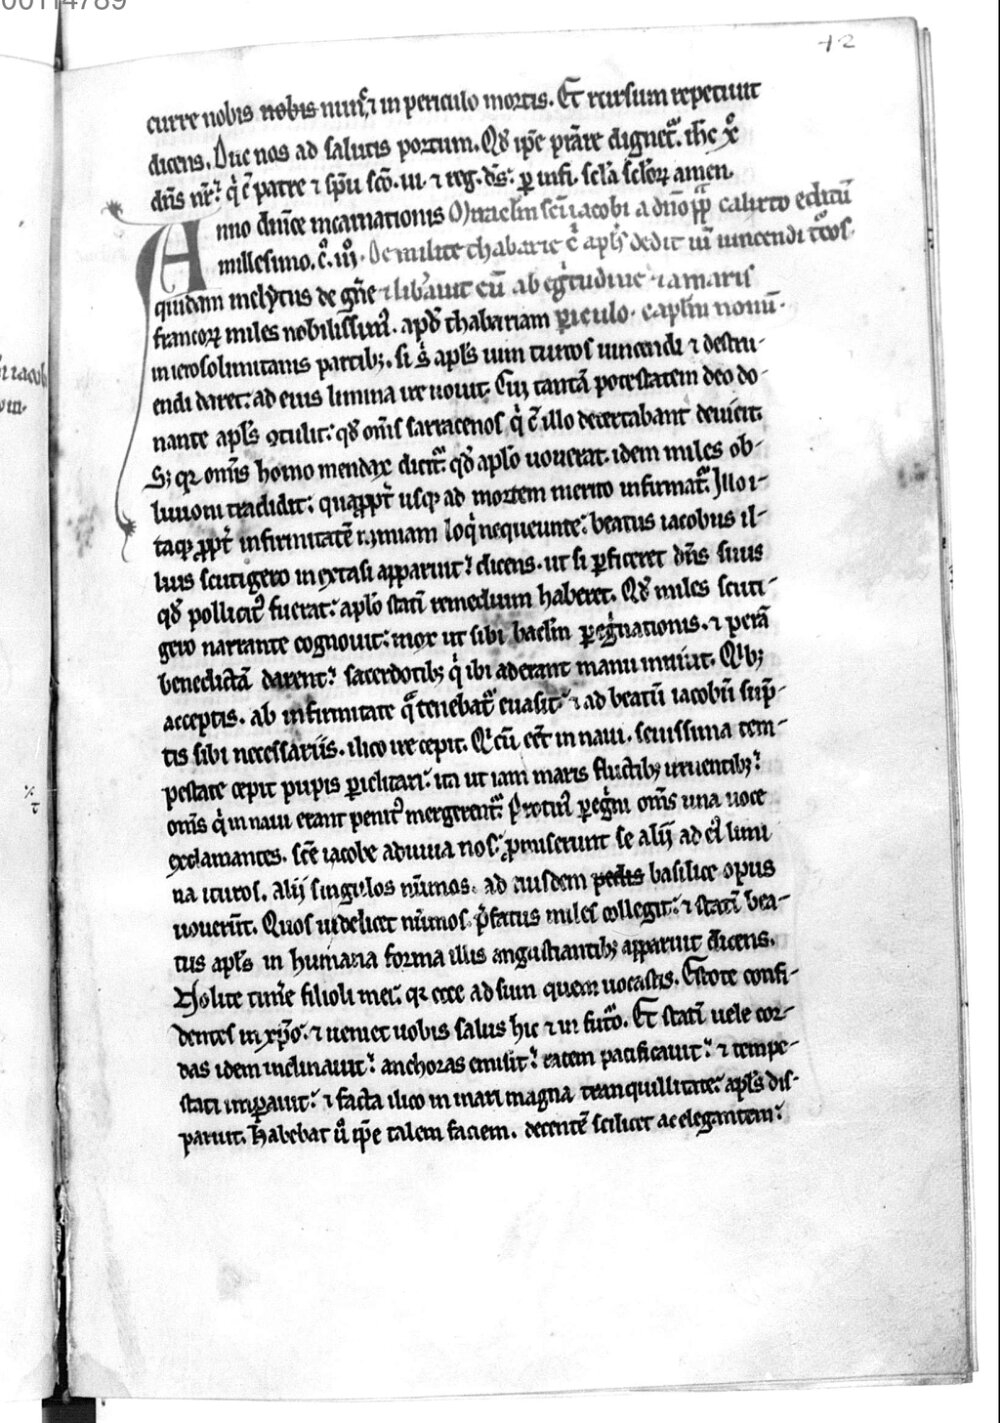 00114789
42
curre nobis nobis nunc ⁊ in periculo mortis. Et rursum repeciuit
dicens. Duc nos ad salutis portum. Qđ ip̄e p̄stare dignet᷑. ih̄c xp̄c
dn̄s nr̄. q̇ c̄ patre ⁊ sp̄u sc̄o. ui. ⁊ reg. ds̄. ꝑ infi. sc̄la sc̄lor̄ꝝ amen.
Anno dn̄ice incarnationis Miraclm̄ sc̄i iacobi a dn̄o pp̄ calixto editū
millesimo. c̊. iii̊. De milite thabarie c̄ apl̄s dedit uī uincendi t̄cos.
quidam inclytus de gn̄e ⁊ lib̄auit eū ab eg̊tudine ⁊ a maris
francorꝝ miles nobilissim᷒. apđ thabariam ꝑiculo. capl̄m nonū.
in ierosolimitanis partib᷒. si s̊ apl̄s uim turcos uincendi ⁊ destru-
endi daret: ad eius limina ire uouit. Cui tantā potestatem deo do-
nante apl̄s ꝯtulit: qđ om̄s sarracenos q̇ c̄ illo decertabant deuicit.
Sꝫ qꝛ omn̄s homo mendax dicit᷑. qđ apl̄o uouerat. idem miles ob-
liuioni tradidit: quaꝓpt̄ usqꝫ ad mortem merito infirmat᷑. Illo i-
taqꝫ ꝓpt̄ infirmitatē nimiam loq̇ nequeunte: beatus iacobus il-
lius scutigero in extasi apparuit: dicens. ut si ꝑficeret dn̄s suus
qđ pollicit᷒ fuerat: apl̄o statī remedium haberet. Qđ miles scuti-
gero narrante cognouit: mox ut sibi baclm̄ ꝑeg̊nationis. ⁊ perā
benedictā darent: sacerdotib᷒ q̇ ibi aderant manu innuit. Qib᷒
acceptis. ab infirmitate q̄ tenebat᷑ euasit: ⁊ ad beatū iacobū sūp-
tis sibi necessariis. ilico ire cepit. Q̇ cū eēt in naui. seuissima tem-
pestate cepit pupis ꝑiclitari: ita ut iam maris fluctib᷒ irruentib᷒:
om̄s q̇ in naui erant penit᷒ mergerent᷑. Protin᷒ ꝑeg̊ni om̄s una uoce
exclamantes. sc̄e iacobe adiuua nos: ꝓmiserunt se alij ad ei᷒ limi
na ituros. alij singulos nūmos. ad eiusdem pedis basilice opus
uouer̄t. Quos uidelicet nūmos p̄fatus miles collegit: ⁊ statī bea-
tus apl̄s in humana forma illis angustiantib᷒ apparuit dicens.
Nolite timē filioli mei: qꝛ ecce adsum quem uocastis. Estote confi-
dentes in xp̄o. ⁊ ueniet uobis salus hic ⁊ in fut᷑o. Et statī uele cor-
das idem inclinauit: anchoras emisit: ratem pacificauit: ⁊ tempe-
stati imꝑauit: ⁊ facta ilico in mari magna tranquillitate: apl̄s dis-
paruit. Habebat ū ip̄e talem faciem. decentē scilicet ac elegantem: